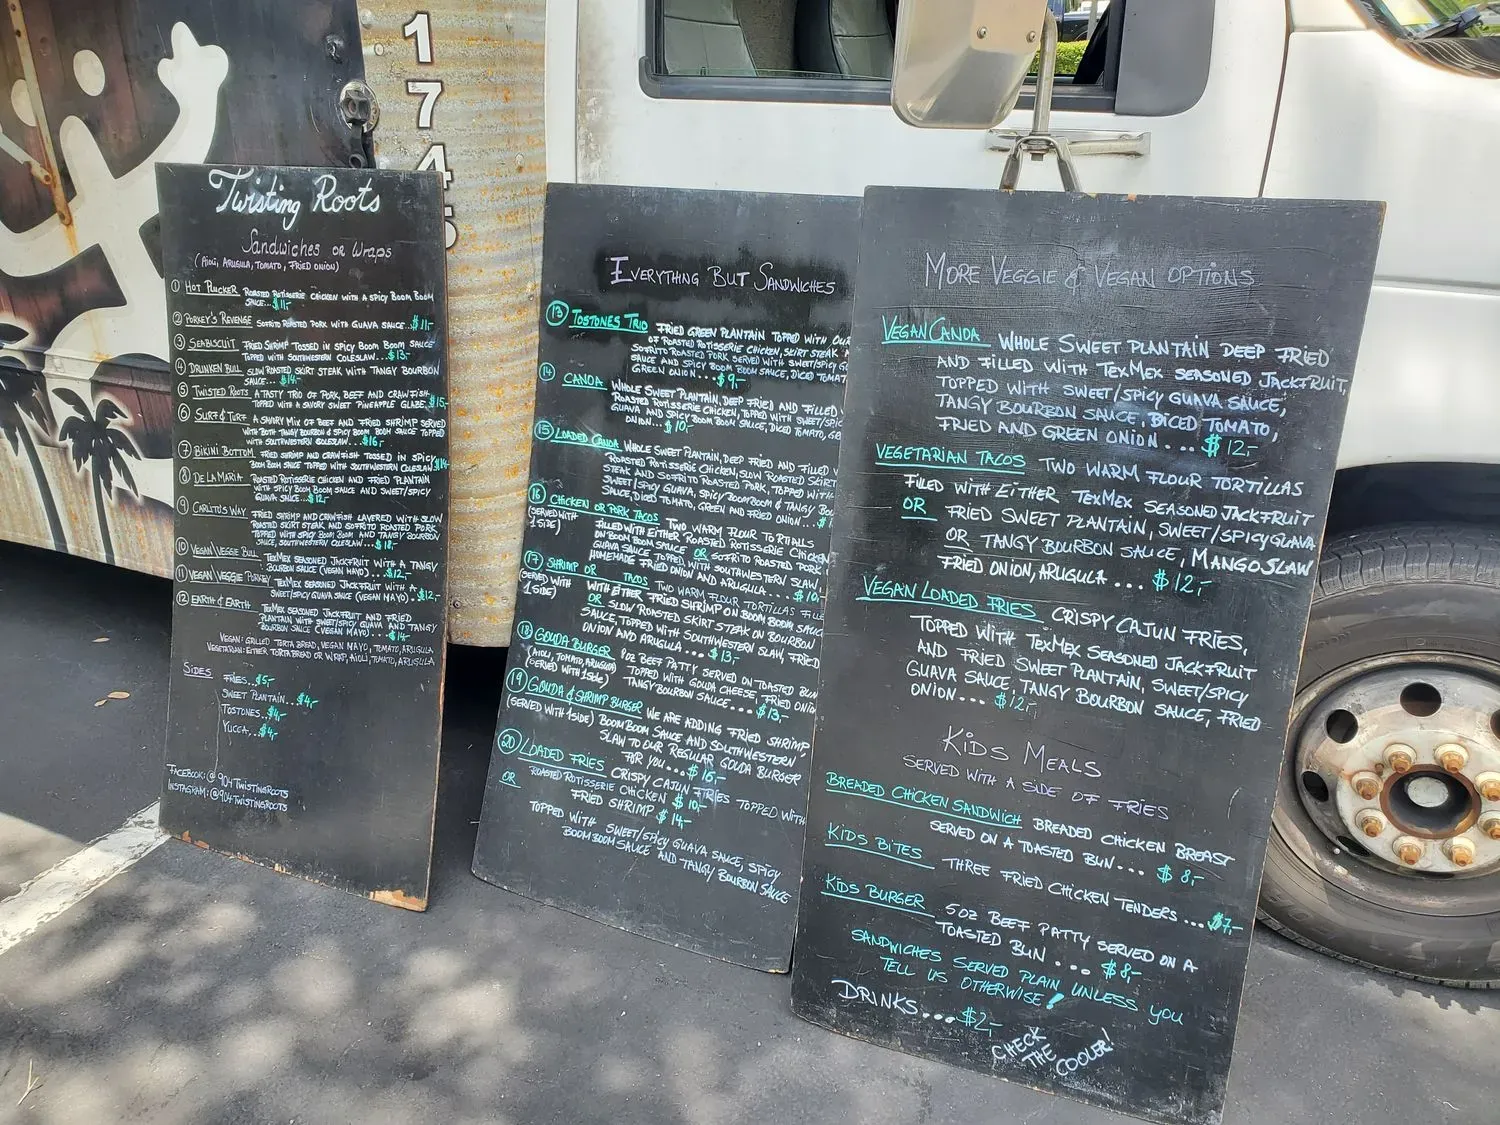 1
7
4
Twisting Roots
Sandwiches or Wraps
(Aioli, Arugula, Tomato, Fried Onion)
1 Hot Plucker Roasted Rotisserie Chicken with a Spicy Boom Boom
Sauce...$11,-
2 Porkey's Revenge Sofrito Roasted Pork with Guava Sauce...$11,-
3 Seabiscuit Fried Shrimp Tossed in Spicy Boom Boom Sauce
Topped with Southwestern Coleslaw..$13,-
4 Drunken Bull Slow Roasted Skirt Steak with Tangy Bourbon
Sauce...$14,-
5 Twisted Roots A Tasty Trio of Pork, Beef and Crawfish
Topped with a Savory Sweet Pineapple Glaze.$15,-
6 Surf & Turf A Savory Mix of Beef and Fried Shrimp Served
with Both Tangy Bourbon & Spicy Boom Boom Sauce Topped
with Southwestern Coleslaw...$16,-
7 Bikini Bottom Fried Shrimp and Crawfish Tossed in Spicy
Boom Boom Sauce Topped with Southwestern Coleslaw
8 De La Maria Roasted Rotisserie Chicken and Fried Plantain
with Spicy Boom Boom Sauce and Sweet/Spicy
Guava Sauce...$12,-
9 Carlito's Way Fried Shrimp and Crawfish Layered with Slow
Roasted Skirt Steak, and Sofrito Roasted Pork
Topped with Spicy Boom Boom and Tangy Bourbon
Sauce, Southwestern Coleslaw...$18,-
10 Vegan/Veggie Bull TexMex Seasoned Jackfruit with a Tangy
Bourbon Sauce (Vegan Mayo)...$12,-
11 Vegan/Veggie Porkey TexMex Seasoned Jackfruit with a
Sweet/Spicy Guava Sauce (Vegan Mayo)...$12,-
12 Earth & Earth TexMex Seasoned Jackfruit and Fried
Plantain with Sweet/Spicy Guava and Tangy
Bourbon Sauce (Vegan Mayo)...$14,-
Vegan: Grilled Torta Bread, Vegan Mayo, Tomato, Arugula
Vegetarian: Either Torta Bread or Wrap, Aioli, Tomato, Arugula
Sides
Fries..$5,-
Sweet Plantain...$4,-
Tostones..$4,-
Yucca...$4,-
Facebook: @904TwistingRoots
Instagram: @904TwistingRoots
Everything But Sandwiches
13 Tostones Trio Fried Green Plantain Topped with Our
of Roasted Rotisserie Chicken, Skirt Steak
Sofrito Roasted Pork Served with Sweet/Spicy
Sauce and Spicy Boom Boom Sauce, Diced Tomat
Green Onion...$9,-
14 Canoa Whole Sweet Plantain, Deep Fried and Filled
Roasted Rotisserie Chicken, Topped with Sweet/Spic
Guava and Spicy Boom Boom Sauce, Diced Tomato,
Onion...$10,-
15 Loaded Canoa Whole Sweet Plantain, Deep Fried and Filled
Roasted Rotisserie Chicken, Slow Roasted Skirt
Steak and Sofrito Roasted Pork, Topped with
Sweet/Spicy Guava, Spicy Boom Boom & Tangy Bo
Sauce, Diced Tomato, Green and Fried Onion...
16 Chicken or Pork Tacos Two Warm Flour Tortialls
(Served with 1 side) Filled with Either Roasted Rotisserie Chicken
on Boom Boom Sauce or Sofrito Roasted Pork
Guava Sauce Topped with Southwestern Slaw,
Homemade Fried Onion and Arugula....$10,
17 Shrimp or Tacos Two Warm Flour Tortillas Fille
(Served with 1 side) with Either Fried Shrimp on Boom Boom Sauc
or Slow Roasted Skirt Steak on Bourbon
Sauce, Topped with Southwestern Slaw, Fried
Onion and Arugula....$13,-
18 Gouda Burger 8oz Beef Patty Served on Toasted Bun
(Aioli, Tomato, Arugula) Topped with Gouda Cheese, Fried Onion
(Served with 1 side) Tangy Bourbon Sauce....$13,-
19 Gouda & Shrimp Burger We Are Adding Fried Shrimp,
(Served with 1 side) Boom Boom Sauce and Southwestern
Slaw to Our Regular Gouda Burger
for You...$16,-
20 Loaded Fries Crispy Cajun Fries Topped with
Roasted Rotisserie Chicken $10,-
or Fried Shrimp $14,-
Topped with Sweet/Spicy Guava Sauce, Spicy
Boom Boom Sauce and Tangy Bourbon Sauce
More Veggie & Vegan Options
Vegan Canoa Whole Sweet Plantain Deep Fried
and Filled with TexMex Seasoned Jackfruit,
Topped with Sweet/Spicy Guava Sauce,
Tangy Bourbon Sauce, Diced Tomato,
Fried and Green Onion... $12,-
Vegetarian Tacos Two Warm Flour Tortillas
Filled with Either TexMex Seasoned Jackfruit
or Fried Sweet Plantain, Sweet/Spicy Guava
or Tangy Bourbon Sauce, Mango Slaw
Fried Onion, Arugula ... $12,-
Vegan Loaded Fries Crispy Cajun Fries,
Topped with TexMex Seasoned Jackfruit
and Fried Sweet Plantain, Sweet/Spicy
Guava Sauce, Tangy Bourbon Sauce, Fried
Onion... $12,-
Kids Meals
Served with a Side of Fries
Breaded Chicken Sandwich Breaded Chicken Breast
Served on a Toasted Bun... $8,-
Kids Bites Three Fried Chicken Tenders...$7,-
Kids Burger 5oz Beef Patty Served on a
Toasted Bun ... $8,-
Sandwiches Served Plain Unless You
Tell Us Otherwise!
Drinks....$2,-
Check
The
Cooler!